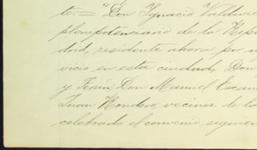 te = "Don Ignacio Valdivie
plenipotenciario de la Repú
residente ahora por
vicio en esta ciudad, Don
y Don Manuel Escan
Juan vecinos de la
celebrado el convenio siguien